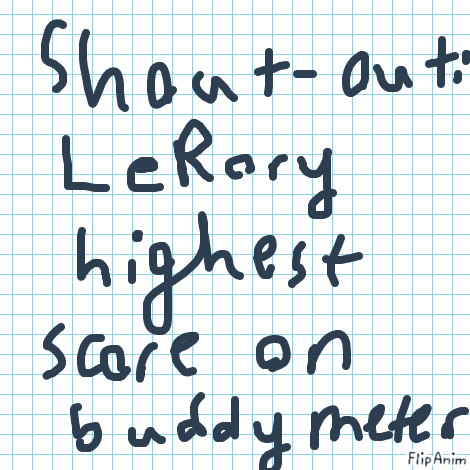 Shout-out:
LeRory
highest
score on
buddy meter
FlipAnim